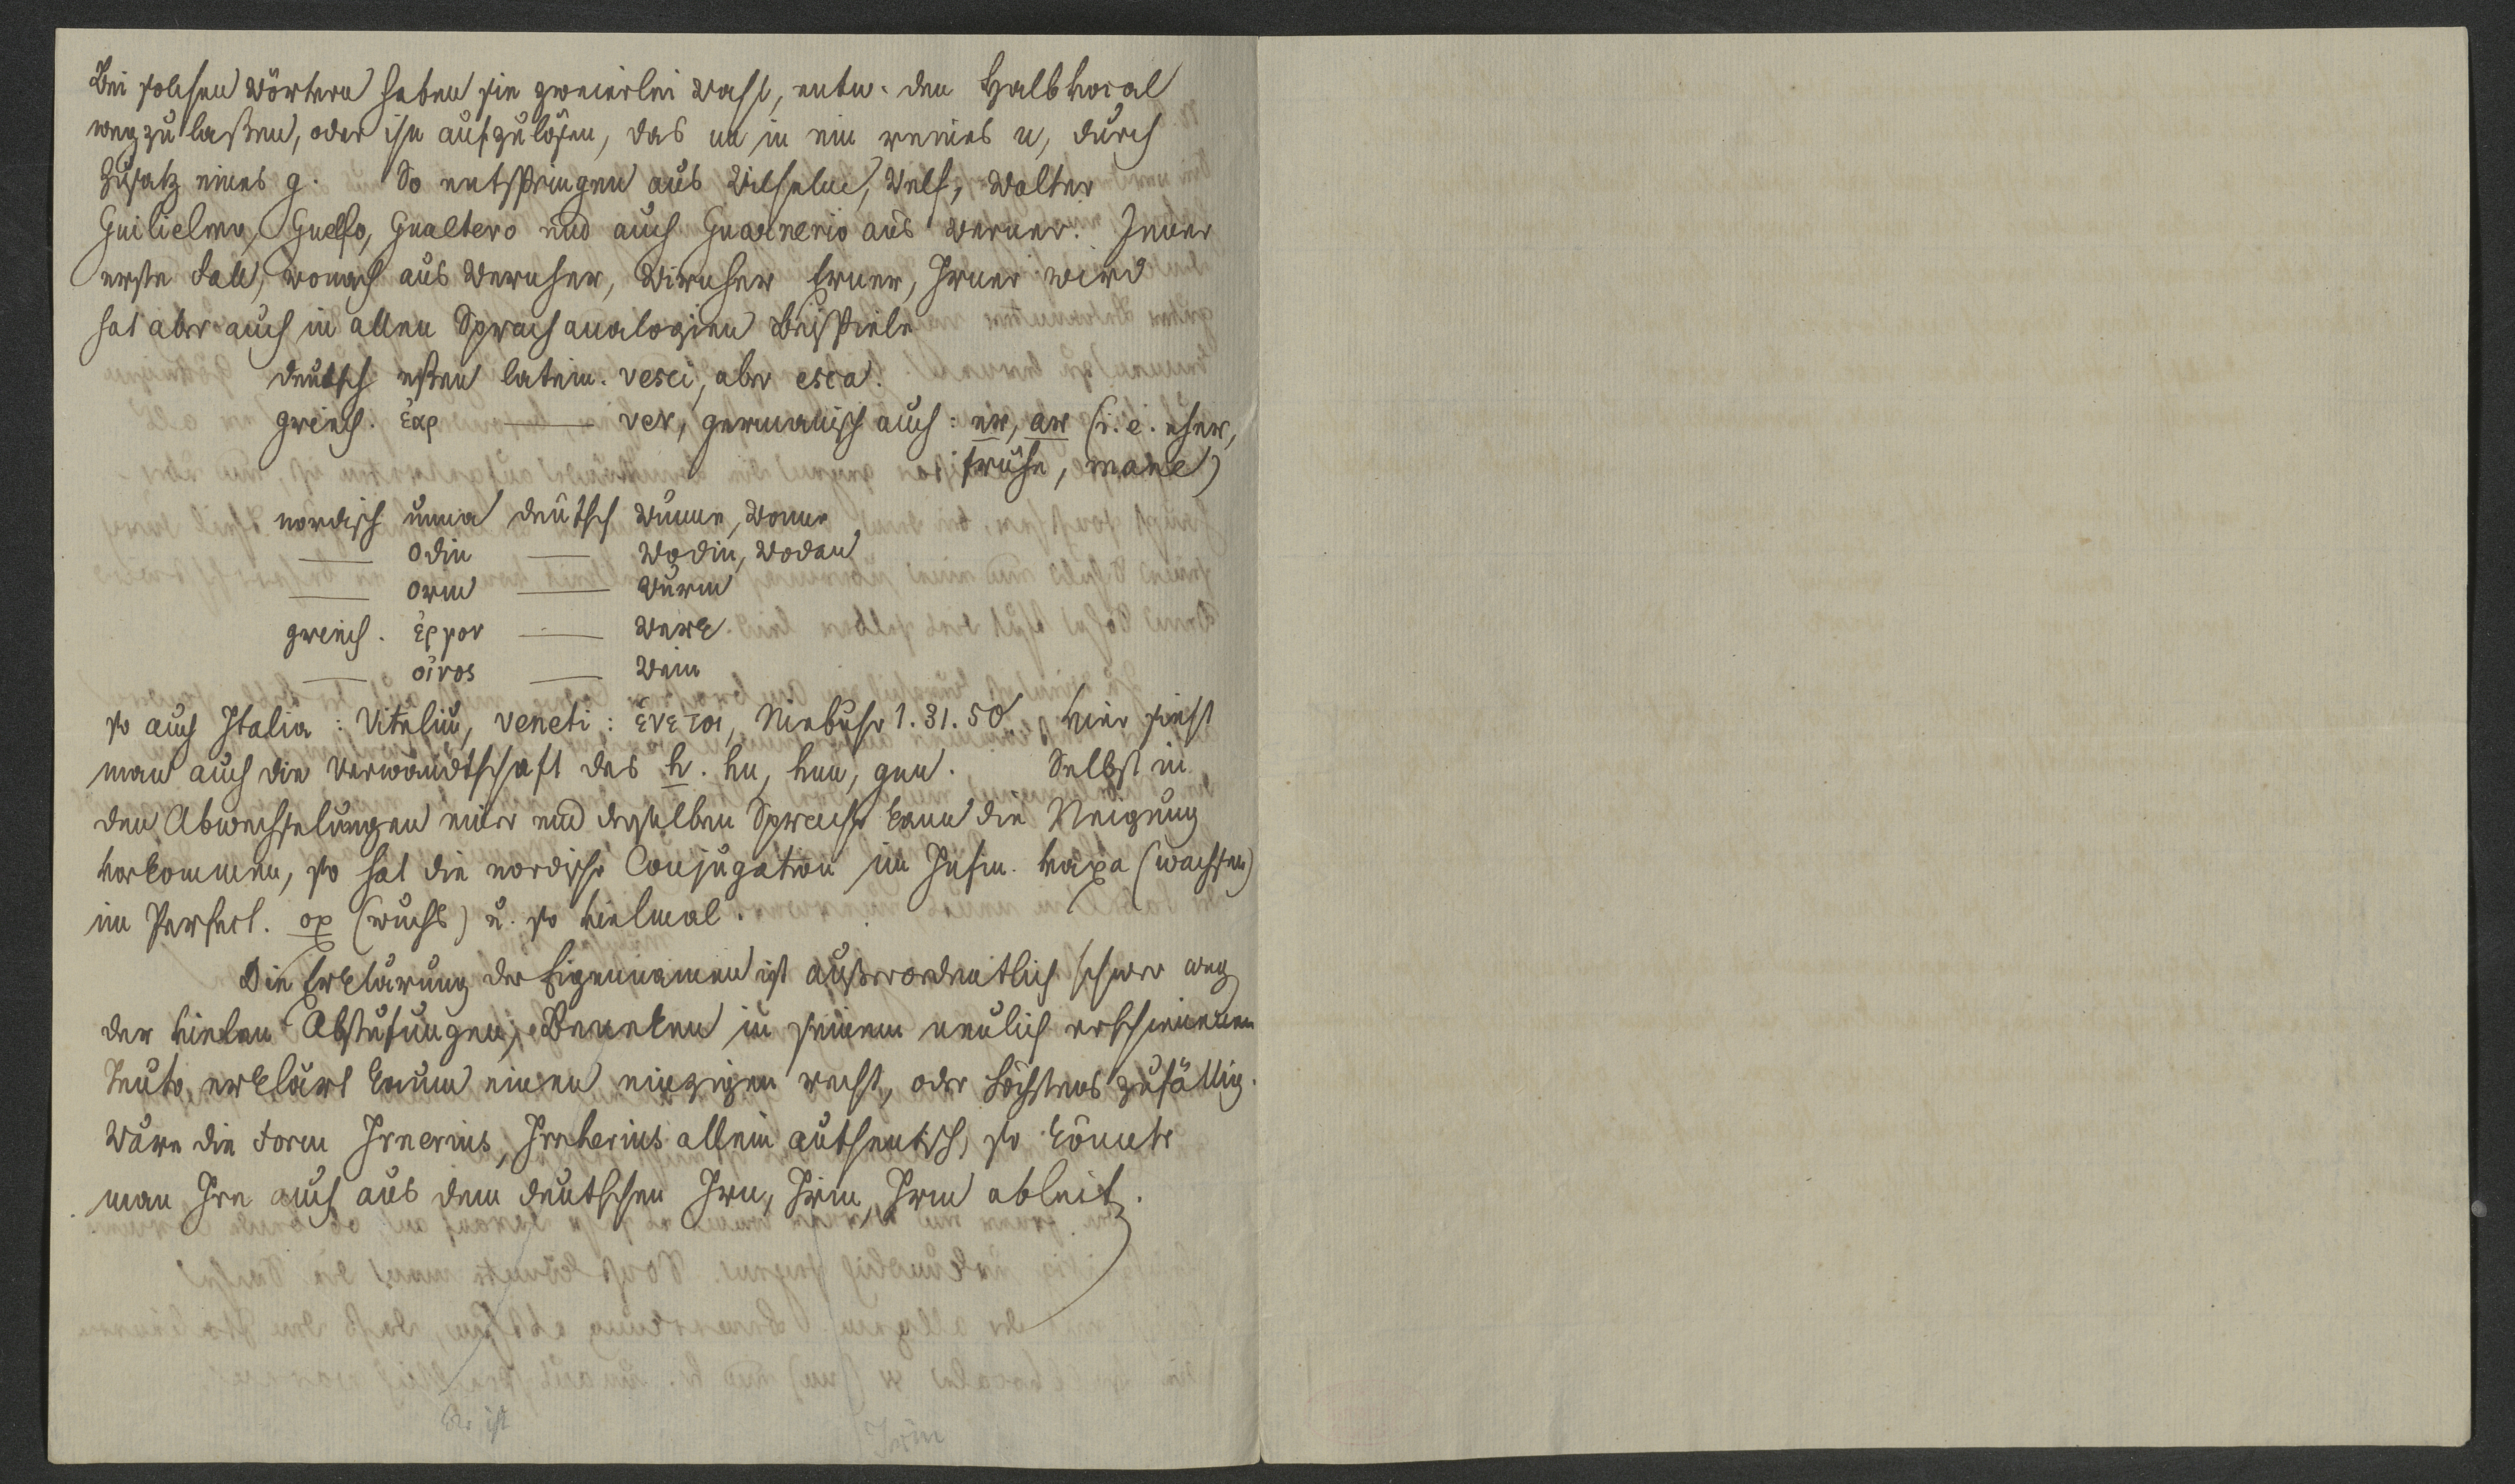 Bei solchen Wörtern haben sie zweierlei Wahl, entw. den Halbvocal
wegzulaßen, oder ihn aufzulösen, das uu in ein reines u, durch
Zusatz eines g. So entspringen aus Wilhelm, Welf, Walter
Guilielmo, Guelfo, Gualtero und auch Guarnerio aus Werner. Jener
erste Fall, wonach aus Wernher, Wirnher Erner, Irner wird
hat aber auch in allen Sprachanalogien Beispiele
deutsch eßen latein. vesci, aber esca.
griech. ἐαρ —— ver, germanisch auch: er, ar (i. e. eher,
frühe, mane)
nordisch unna deutsch Wunne, Wonne
—— Odin —— Wodin, Wodan
—— orm —— Wurm
griech. ἐργον —— Werk
—— οἰνος —— Wein
so auch Italia: Vitaliu, Veneti: ἑνετοι, Niebuhr 1. 31. 50. hier sieht
man auch die Verwandtschaft des h. hu, huu, guu. Selbst in
den Abwechselungen einer und derselben Sprache kann die Neigung
vorkommen, so hat die nordische Conjugation im Infin. vaxa (wachsen)
im Perfect. ox (wuchs) u. so vielmal.
Die Erklärung der Eigennamen ist außerordentlich schwer weg
der vielen Abstufungen; Beneken in seinem neulich erschienenen
Teuto erklärt kaum einen einzigen recht, oder höchstens zufällig.
Wäre die Form Irnerius, Irnherius allein authentisch, so könnte
man Irn auch aus dem deutschen Irn, Irin, Irm ableit.
Er ist
Irin